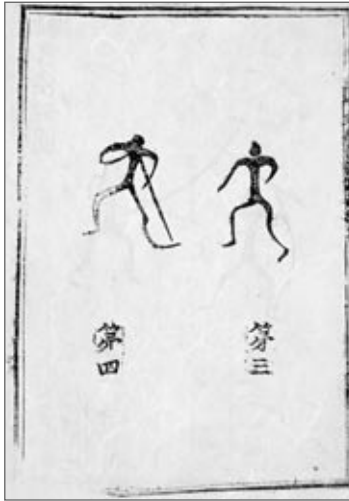 第三
第四